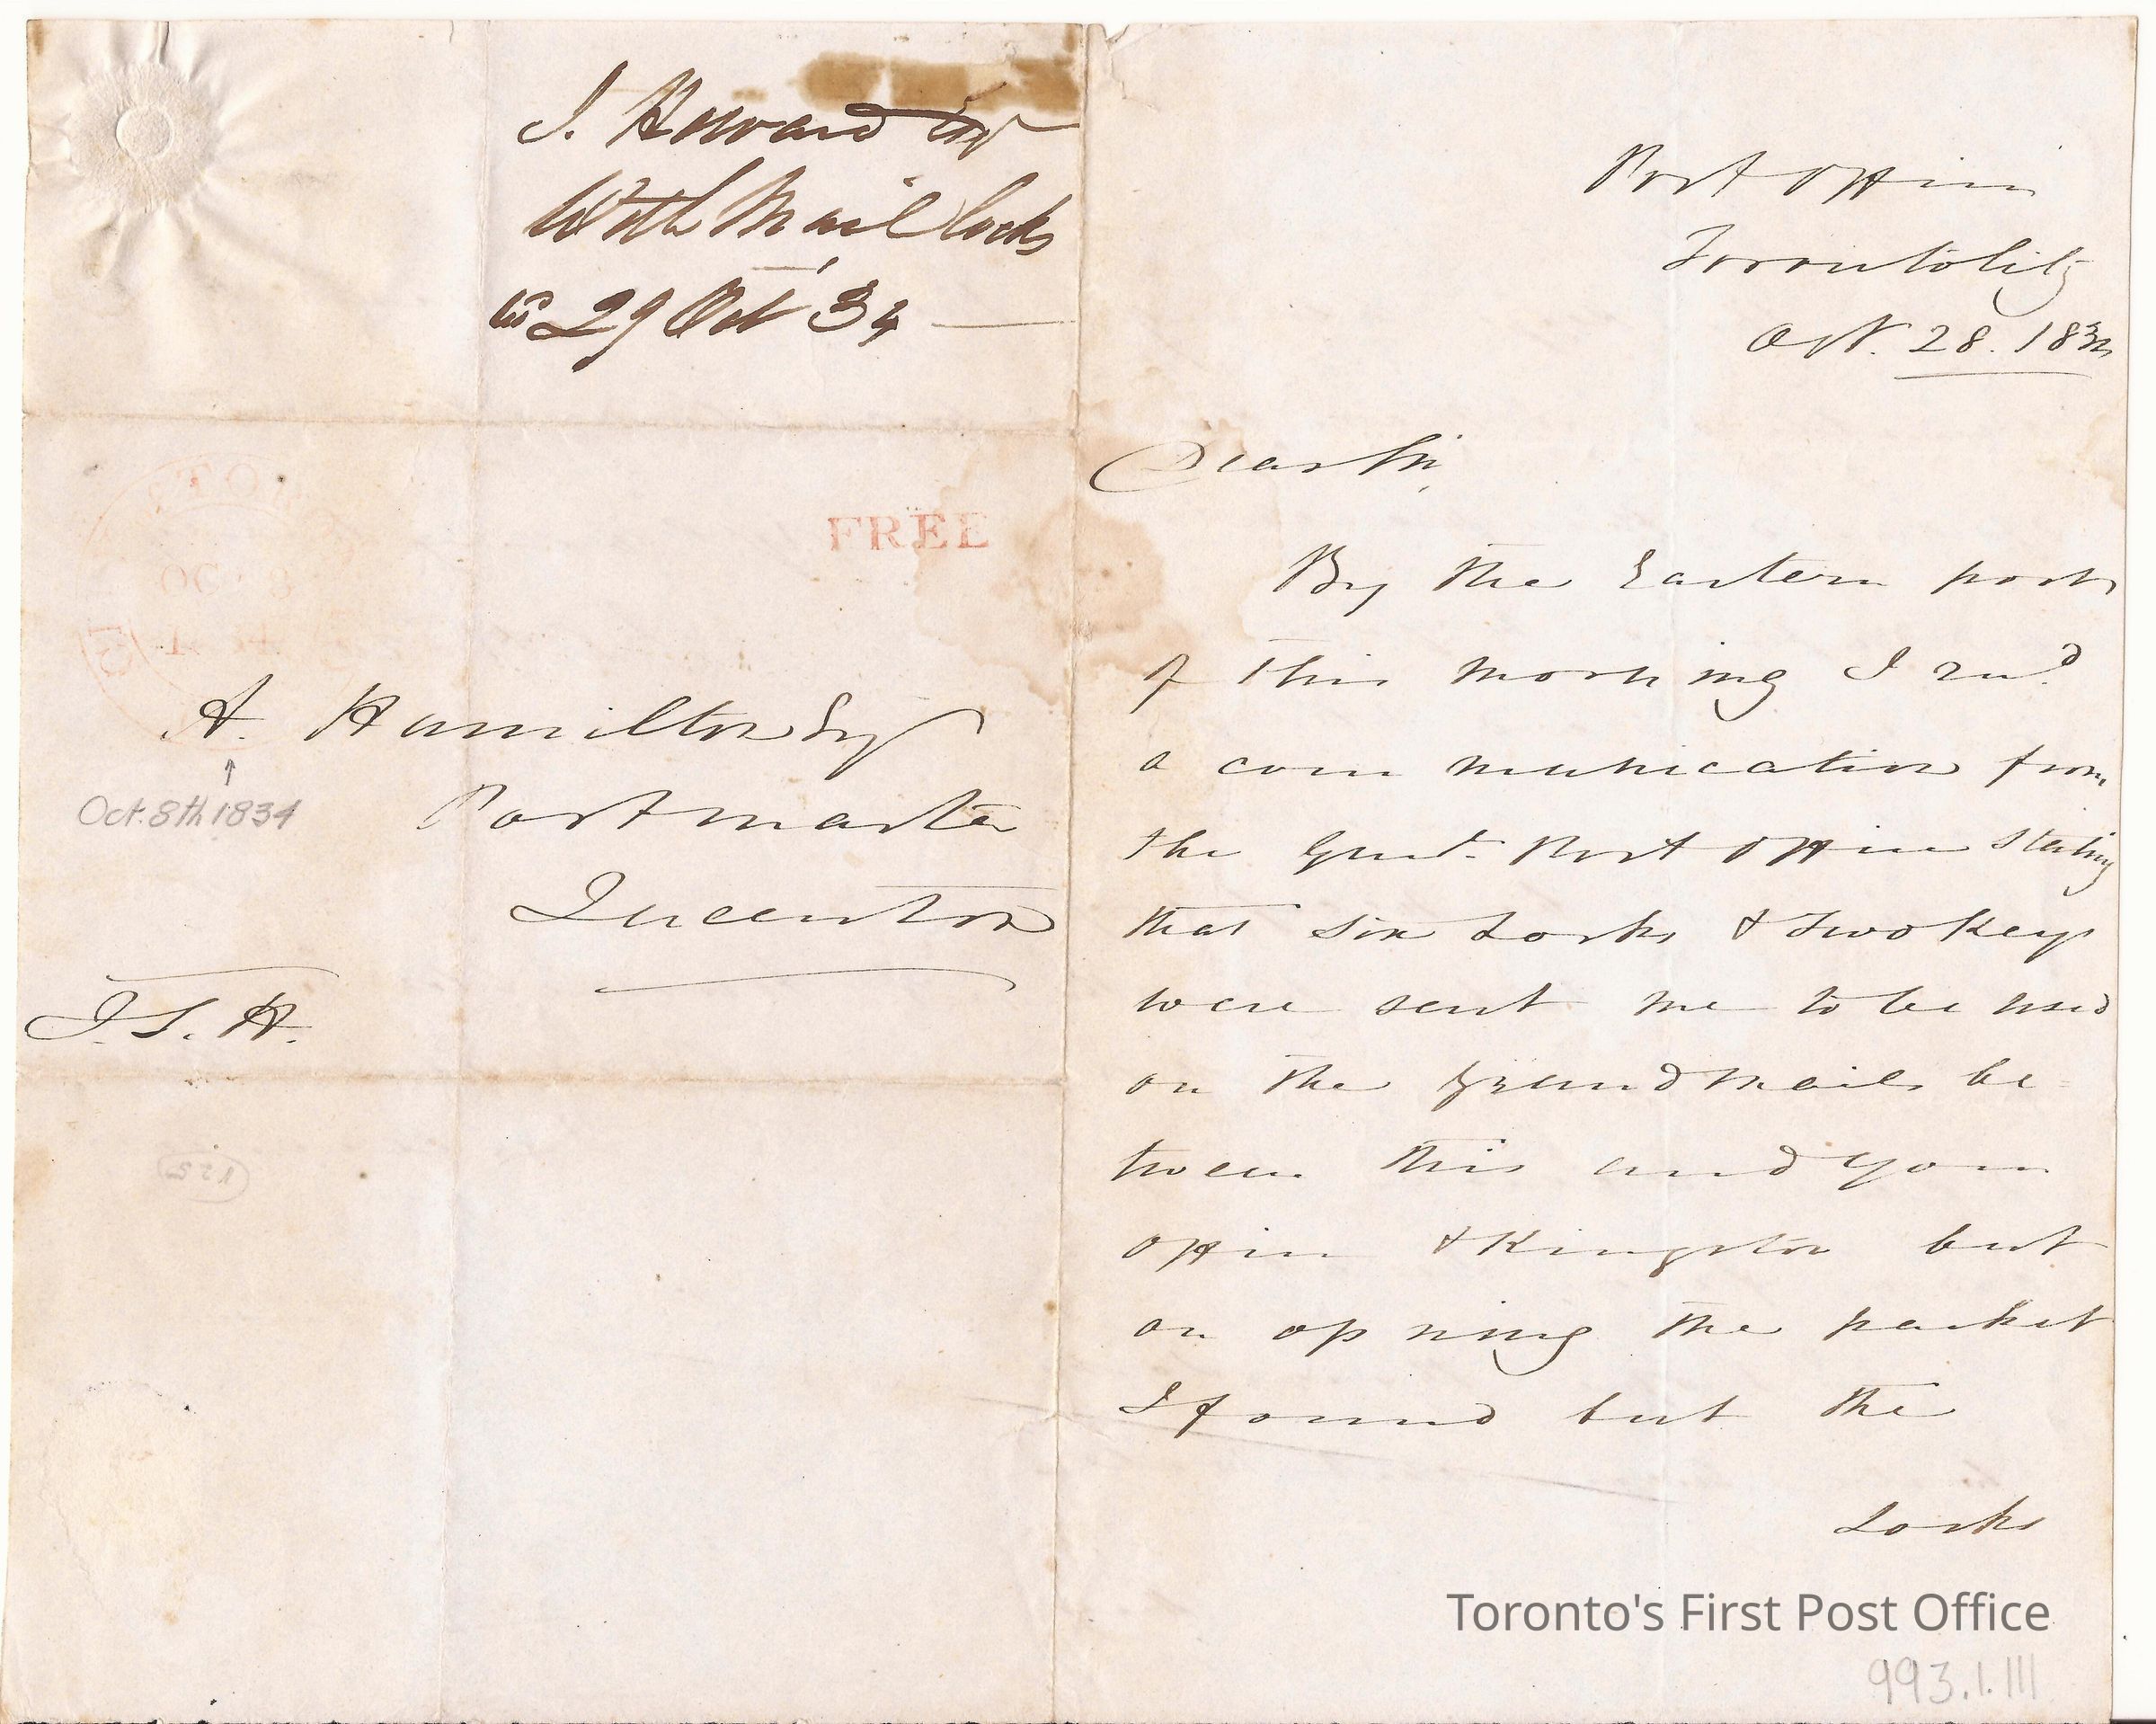 J. Howard
With Mail locks
29 Oct 34
FREE
A. Hamilton Esq
Postmaster
Queenston
Oct. 8th 1834
J.S.H.
Post Office
Toronto City
Oct. 28. 1834
Dear Sir,
By the Eastern post
of this morning I recd.
a communication from
the Genl. Post Office stating
that six Locks & Two Keys
were sent me to be used
on the Grand Mails be-
tween this and your
office & Kingston but
on opning the packet
I found but the
Locks
Toronto's First Post Office
993.1.111